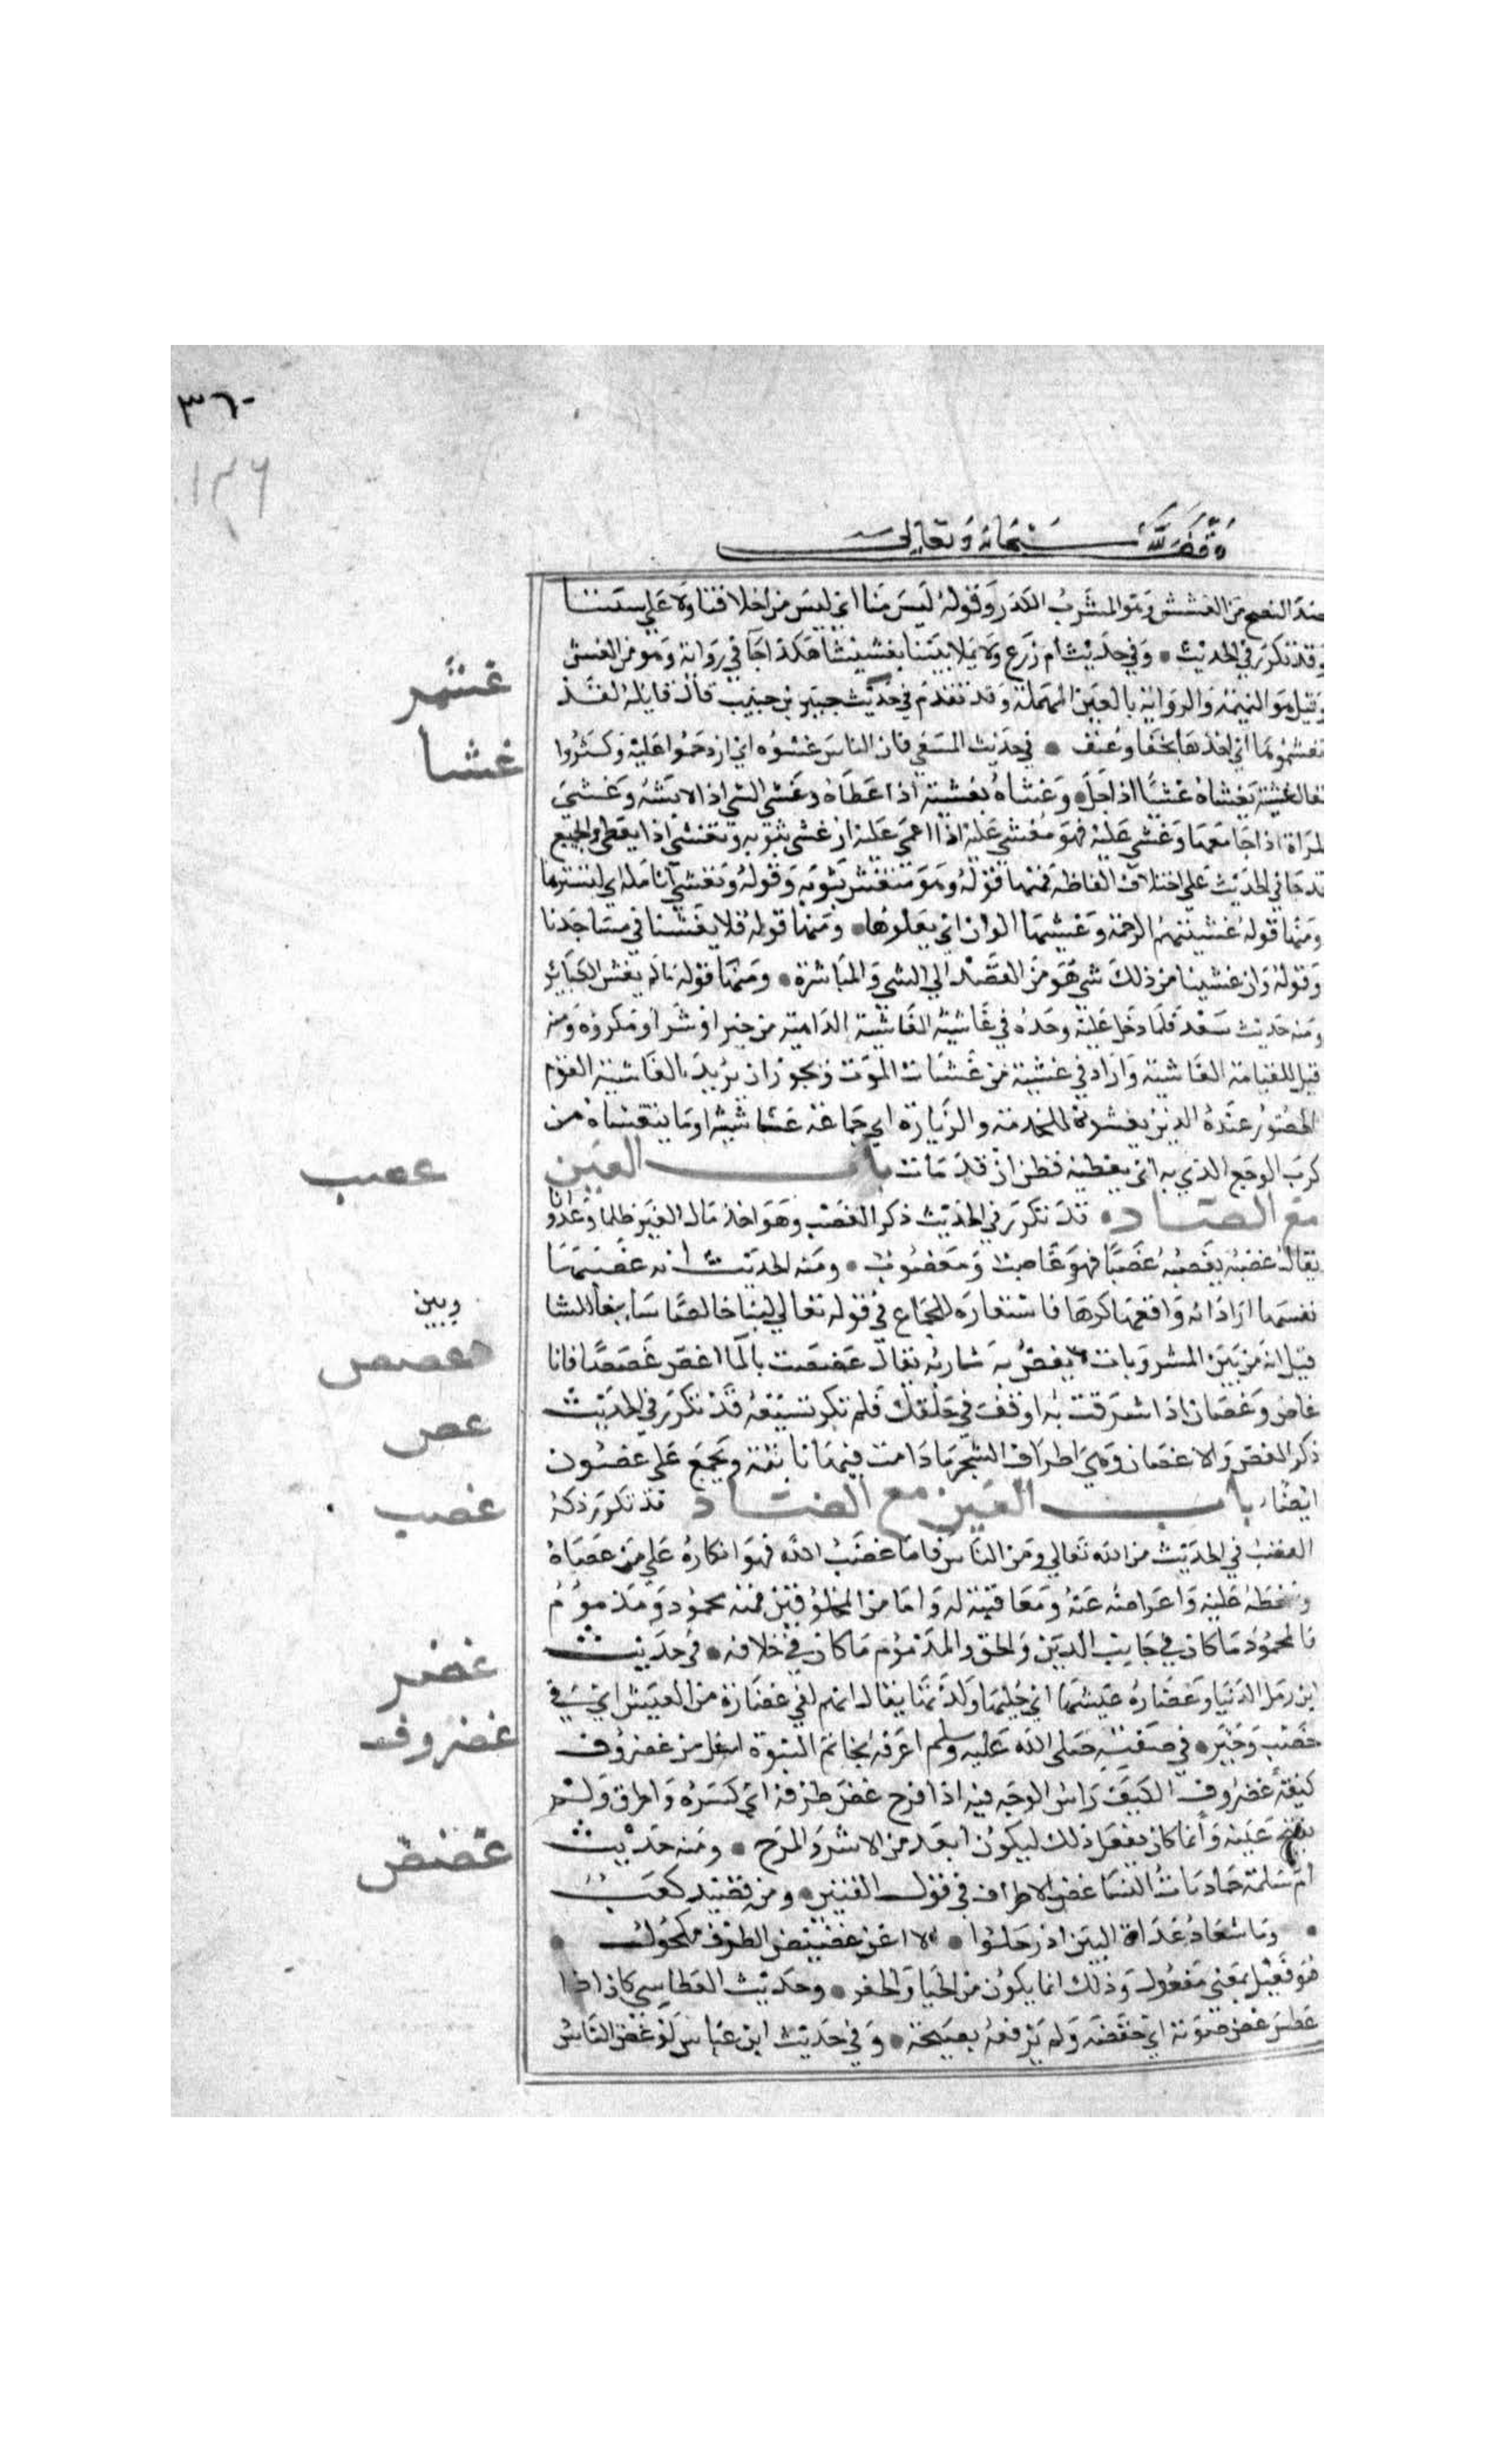 ٣٦٠
١٣٦
وقف لله سبحانه وتعالى
ضد النصح من الغشش وهو المشرب الكدر وقوله ليس منا اي ليس من اخلاقنا ولا على سنتنا
وقد تكرر في الحديث • وفي حديث ام زرع ولا تملا بيتنا تغشيشا هكذا جا في رواية وهو من الغش
وقيل هو النميمة والرواية بالعين المهملة وقد تقدم في حديث جبير بن حبيب قال قاتله لقد
غشمر
تغشمرها اي اخذها بجفا وعنف • في حديث المسعى فان الناس غشوه اي ازدحموا عليه وكثروا
غشا
يقال غشيه يغشاه غشيا اذا جا وغشاه تغشية اذا غطاه وغشي الشي اذا لابسه وغشي
المراة اذا جامعها وغشي عليه فهو مغشي عليه اذا اغمي عليه واستغشى بثوبه وتغشى اذا تغطى والجميع
قد جا في الحديث على اختلاف الفاظه فمنها قوله وهو متغش بثوبه وقوله وتغشي انامله اي تسترها
ومنها قوله غشيتهم الرحمة وغشيها الوان اي يعلوها • ومنها قوله فلا يغشنا في مساجدنا
وقوله وان غشينا من ذلك شي هو من القصد الى الشي والمباشرة • ومنها قوله ما لم يغش الكبائر
ومنه حديث سعد فلما دخل عليه وجده في غاشية الغاشية الداهية من خير او شر او مكروه ومنه
قيل للقيامة الغاشية واراد في غشية من غشيات الموت ويجوز ان يريد بالغاشية القوم
الحضور عنده الذين يغشونه للخدمة والزيارة اي جماعة غاشية او ما يتغشاه من
كرب الوجع الذي به اي يغطيه فظن ان قد مات باب الغين
غصب
مع الصاد • قد تكرر في الحديث ذكر الغصب وهو اخذ مال الغير ظلما وعدوانا
يقال غصبه يغصبه غصبا فهو غاصب ومغصوب • ومنه الحديث انه غصبها
نفسها اراد انه واقعها كرها فاستعاره للجماع في قوله تعالى لبنا خالصا سائغا للشا
وبين
غصص
قيل انه من بين المشروبات لا يغص به شاربه يقال غصصت بالما اغص غصصا فانا
غاص وغصان اذا شرقت به او وقف في حلقك فلم تكد تسيغه قد تكرر في الحديث
غصن
ذكر الغصن والاغصان وهي اطراف الشجر ما دامت فيها نابتة ويجمع على غصون
ايضا باب الغين مع الضاد قد تكرر ذكر
غضب
الغضب في الحديث من الله تعالى ومن الناس فاما غضب الله فهو انكاره على من عصاه
وسخطه عليه واعراضه عنه ومعاقبته له واما من المخلوقين فمنه محمود ومذموم
فالمحمود ما كان في جانب الدين والحق والمذموم ما كان في خلافه • في حديث
غضر
ابن زمل الدنيا وغضارة عيشها اي طيبها ولذتها يقال انهم لفي غضارة من العيش اي في
خصب وخير • في صفته صلى الله عليه وسلم اعرفه بخاتم النبوة اسفل من غضروف
غضروف
كتفه غضروف الكتف راس لوحه فيه اذا فرح غض طرفه اي كسره واطرق ولم
يفتح عينه وانما كان يفعل ذلك ليكون ابعد من الاشر والمرح • ومنه حديث
غضض
ام سلمة حماديات النسا غض الاطراف في قول القتيبي • ومن قصيد كعب
• وما سعاد غداة البين اذ رحلوا • الا اغن غضيض الطرف مكحول •
هو فعيل بمعنى مفعول وذلك انما يكون من الحيا والخفر • وحديث العطاس كان اذا
عطس غض صوته اي خفضه ولم يرفعه بصيحة • وفي حديث ابن عباس لو غض الناس